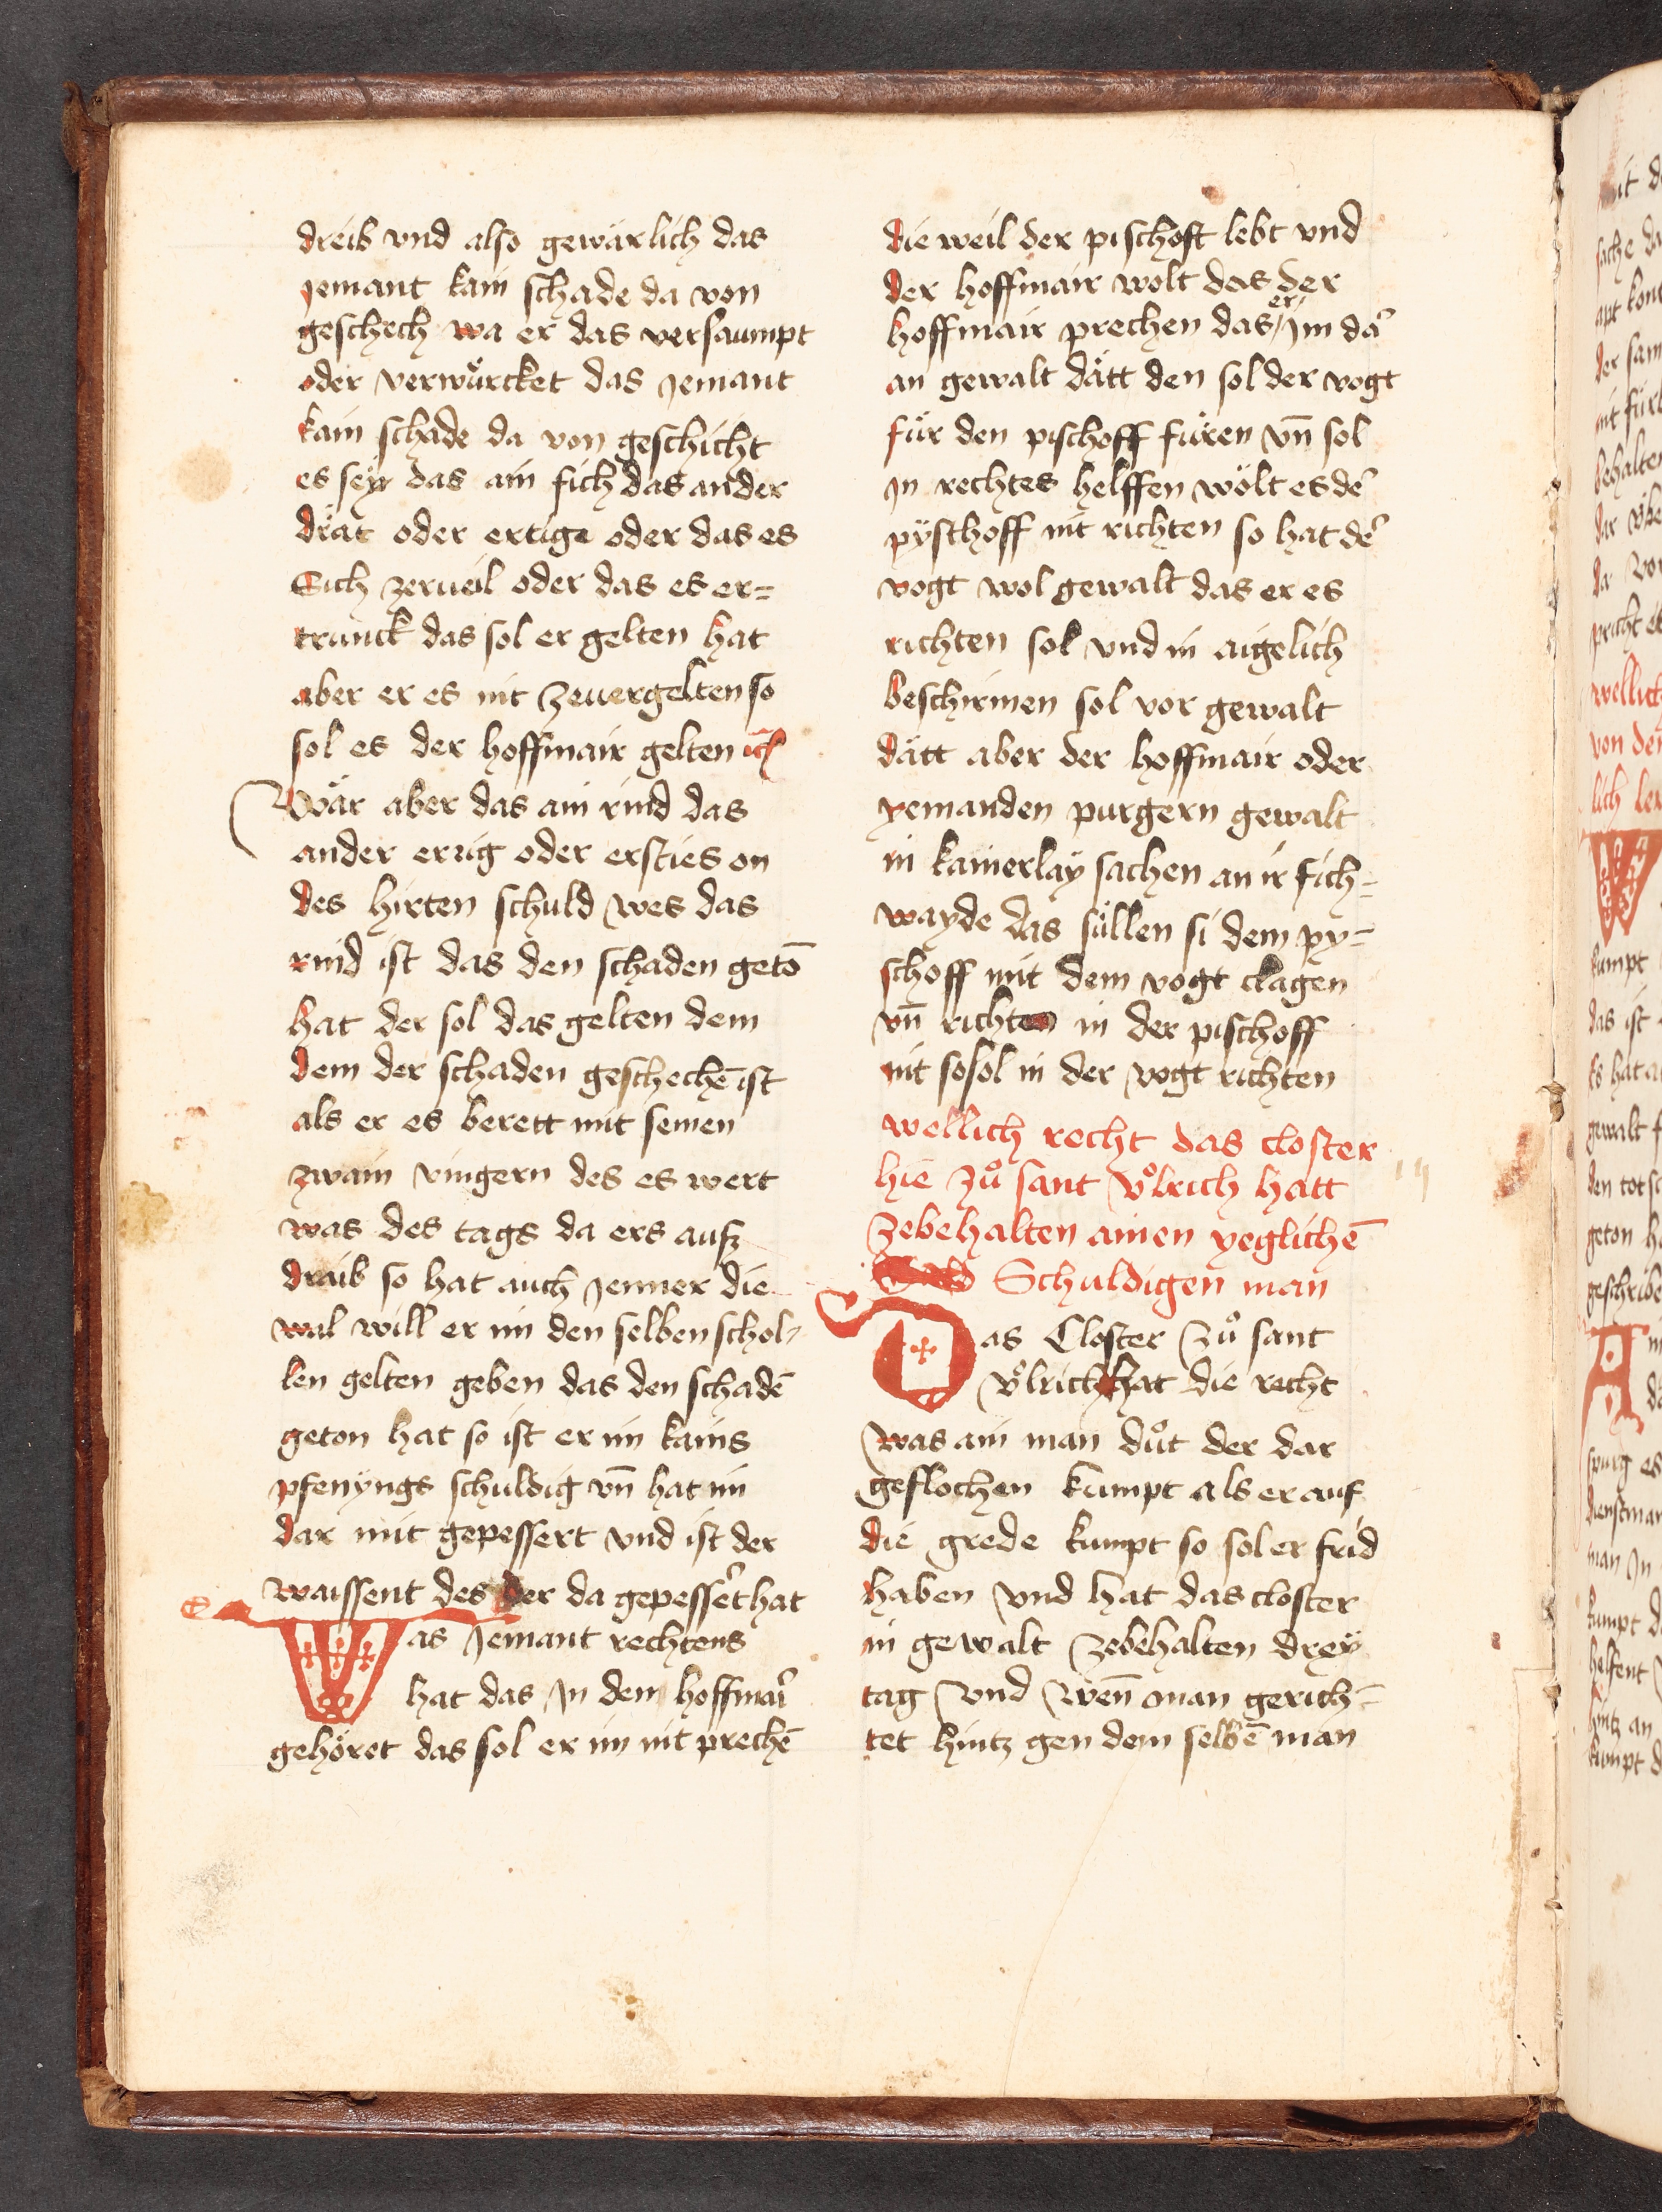 dreib vnd also gewärlich das
jemant kain schade da von
geschech wa er das versaumpt
oder verwürcket das jemant
kain schade da von geschicht
es seÿ das ain fich das ander
drät oder ertige oder das es
Sich zeruiel oder das es er=
trünck das sol er gelten hat
aber er es nit zeuergelten so
sol es der hoffmair gelten
Wär aber das ain rind das
ander errig oder ersties on
des hirten schuld wes das
rind ist das den schaden getō
hat der sol das gelten dem
dem der schaden geschechē ist
als er es berett mit seinen
zwain vingern des es wert
was des tags da ers ausz
draib so hat auch jenner die
wal will er im den selben schol=
len gelten geben das den schadē
geton hat so ist er im kains
pfenyngs schuldig vn̄ hat im
dar mit gepessert vnd ist der
waissent des der da gepessert hat
Was jemant rechtens
hat das jn dem hoffmair
gehöret das sol er im nit prechē
die weil der pischoft lebt vnd
der hoffmair wolt das der
hoffmair prechen das er jm dar
an gewalt dätt den sol der vogt
für den pischoff füren vn̄ sol
jn rechtes helffen wölt es der
pÿschoff nit richten so hat der
vogt wol gewalt das er es
richten sol vnd in aigelich
beschirmen sol vor gewalt
dätt aber der hoffmair oder
yemanden purgern gewalt
in kainerlaÿ sachen an ir fich=
wayde das süllen si dem py=
schoff mit dem vogt clagen
vn̄ richten in der pischoff
nit so sol in der vogt richten
wellich recht das closter
hie zů sant Vͦlrich hatt
zebehalten ainen yeglichē
Schuldigen man
Das Closter zů sant
Vͦlrich hat die recht
was ain man důt der dar
geflochen kumpt als er auf
die grede kumpt so sol er frid
haben vnd hat das closter
in gewalt zebehalten dreÿ
tag vnd wen̄ man gerich=
tet hintz gen dem selbē man